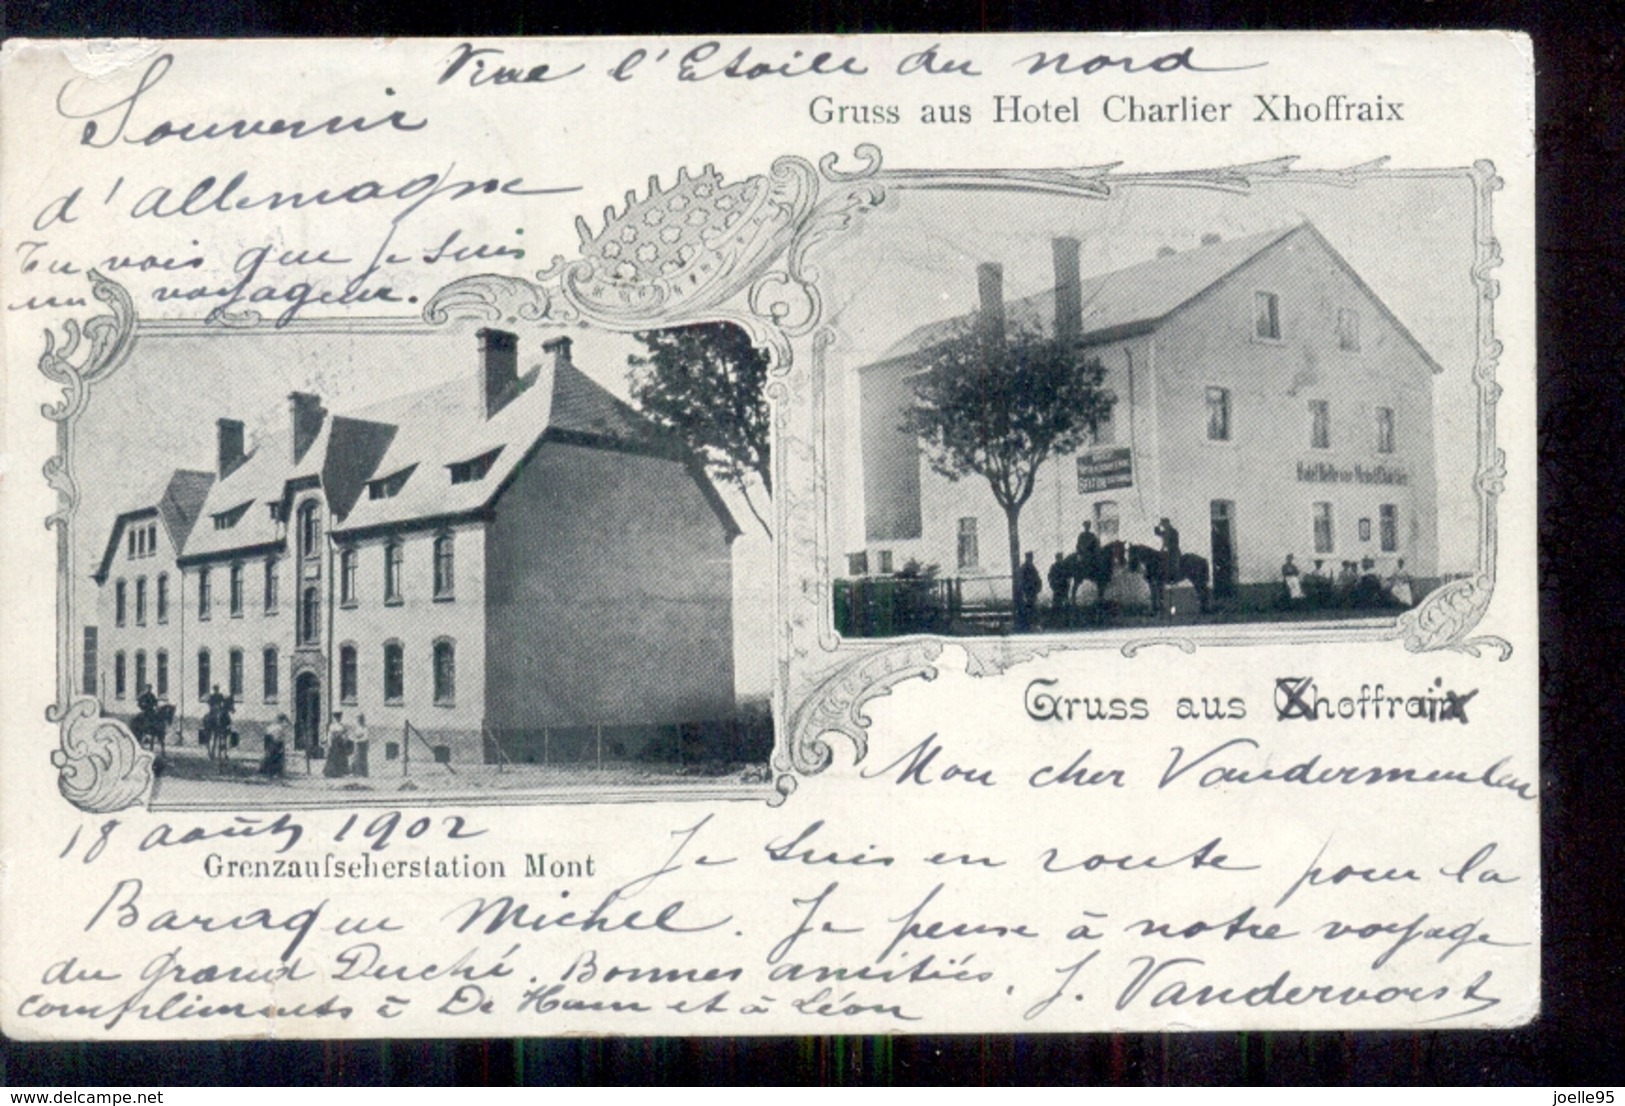 Vive l'Etoile du nord
Gruss aus Hotel Charlier Xhoffraix
Souvenir
d'allemagne
Tu vois que je suis
un voyageur.
Hotel Belle vue Mendt Charlier
Gruss aus Xhoffraix
Mon cher Vandermeulen
18 août 1902
Grenzaufseherstation Mont
Je suis en route pour la
Baraque Michel. Je pense à notre voyage
du Grand Duché. Bonnes amitiés.
compliments à De Ham et à Léon
J. Vandervorst
www.delcampe.net
joelle95